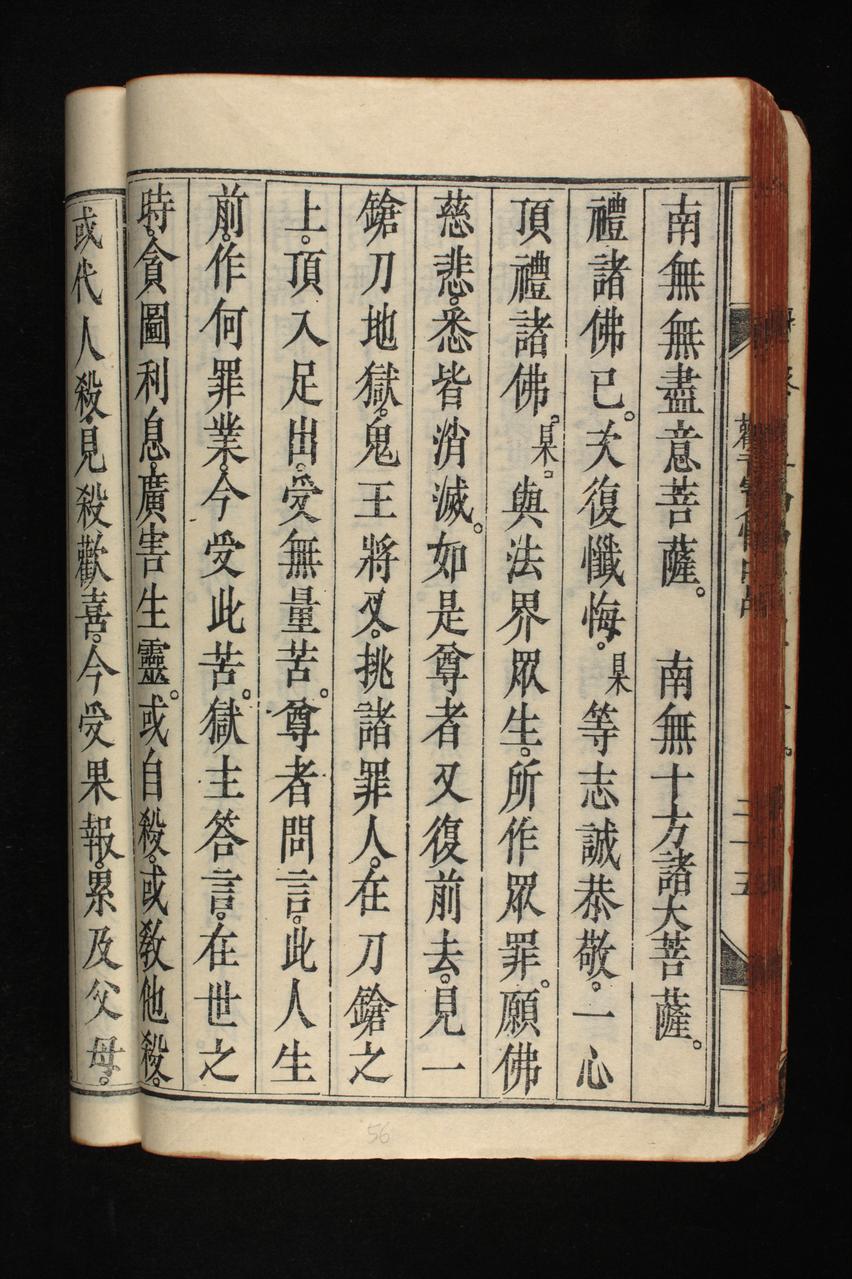 南無無盡意菩薩。　南無十方諸大菩薩。
禮諸佛已。次復懺悔。某等志誠恭敬。一心
頂禮諸佛。某。與法界眾生。所作眾罪。願佛
慈悲。悉皆消滅。如是尊者又復前去。見一
鎗刀地獄。鬼王將叉。挑諸罪人。在刀鎗之
上。頂入足出。受無量苦。尊者問言。此人生
前。作何罪業。今受此苦。獄主答言。在世之
時。貪圖利息。廣害生靈。或自殺。或教他殺。
或代人殺。見殺歡喜。今受果報。累及父母。
二十五
56